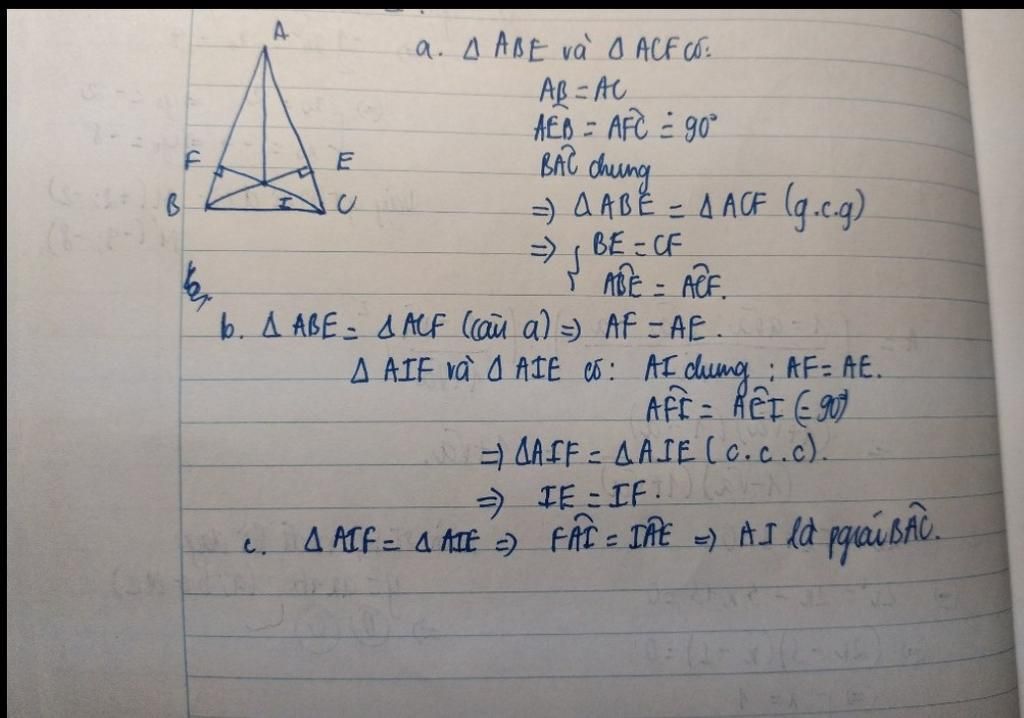 A
F
E
B
I
C
a. Δ ABE và Δ ACF có:
AB = AC
AÊB = AF̂C = 90°
BÂC chung
=> Δ ABE = Δ ACF (g.c.g)
=> { BE = CF
AB̂E = AĈF.
b. Δ ABE = Δ ACF (câu a) => AF = AE.
Δ AIF và Δ AIE có: AI chung ; AF = AE.
AF̂I = AÊI (= 90°)
=> ΔAIF = ΔAIE (c.c.c).
=> IE = IF.
c. Δ AIF = Δ AIE => FÂI = IÂE => AI là pgiác BÂC.